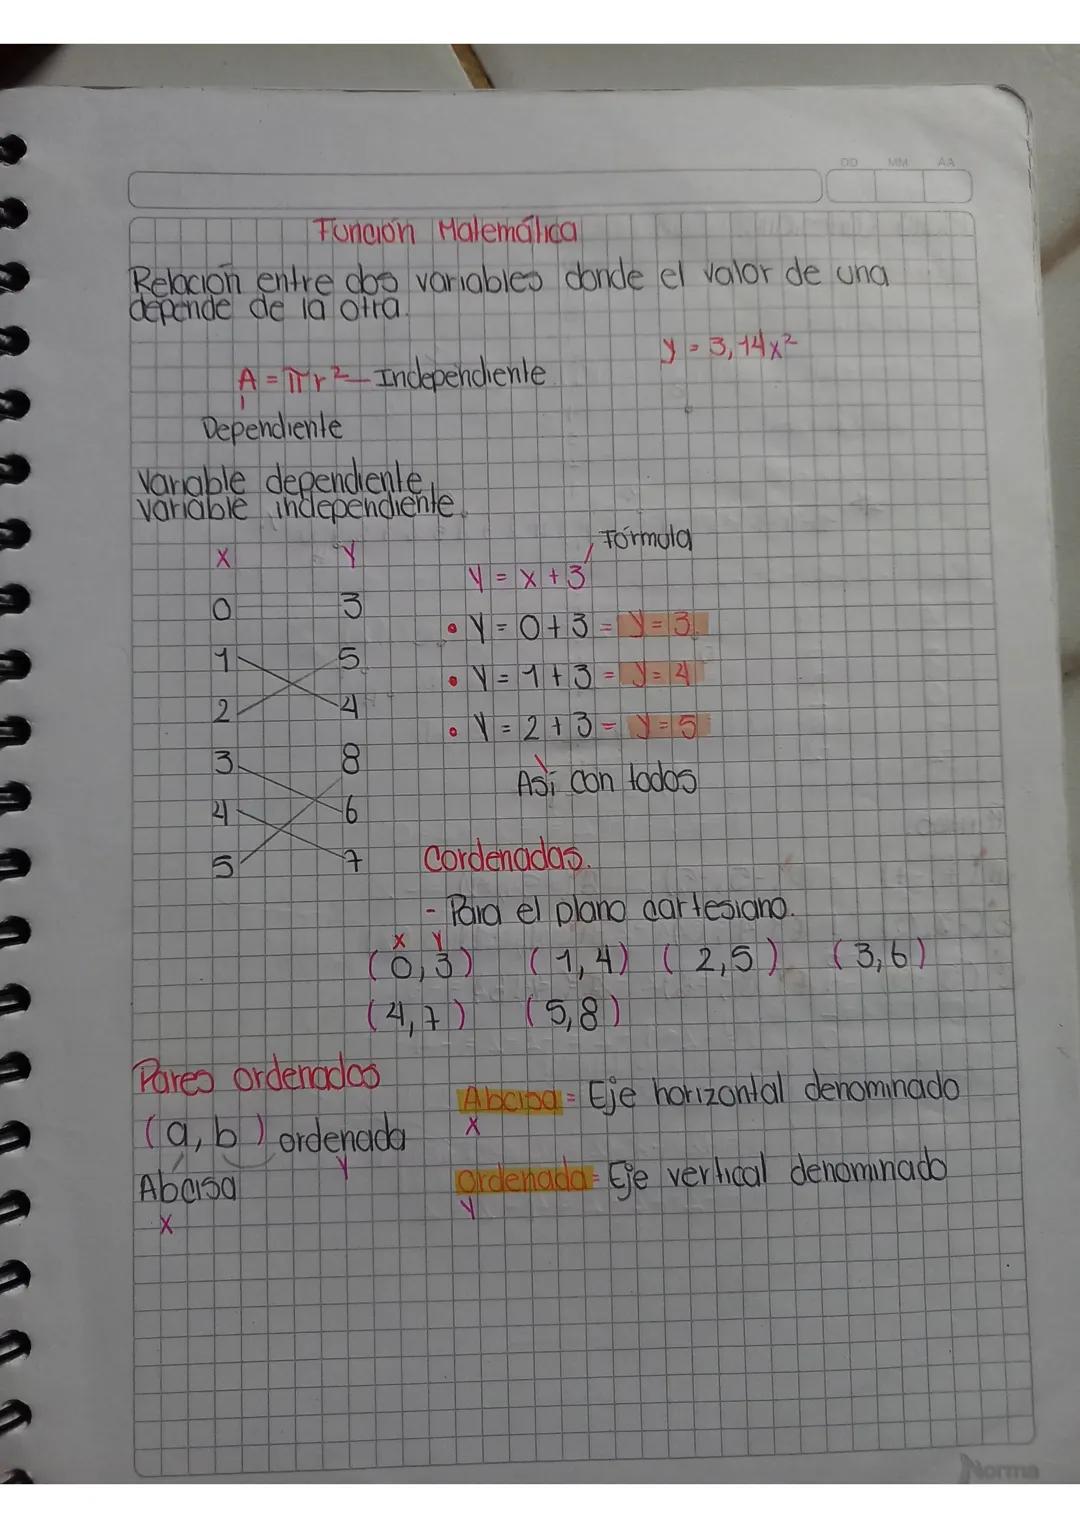 DD MM AA
Función Matemática
Relación entre dos variables donde el valor de una
depende de la otra.
y = 3,14x²
A = πr² Independiente
Dependiente
Variable dependiente
Variable independiente
Fórmula
X Y
y = x + 3
0 3
• Y = 0 + 3 = y = 3
1 5
• Y = 1 + 3 = y = 4
2 4
• Y = 2 + 3 = y = 5
3 8
Así con todos
4 6
5 7
Cordenadas.
- Para el plano cartesiano.
X Y
(0,3) (1,4) (2,5) (3,6)
(4,7) (5,8)
Pares ordenados
Abcisa = Eje horizontal denominado
X
(a, b) ordenada
Y
Abcisa
X
Ordenada = Eje vertical denominado
Y
Norma